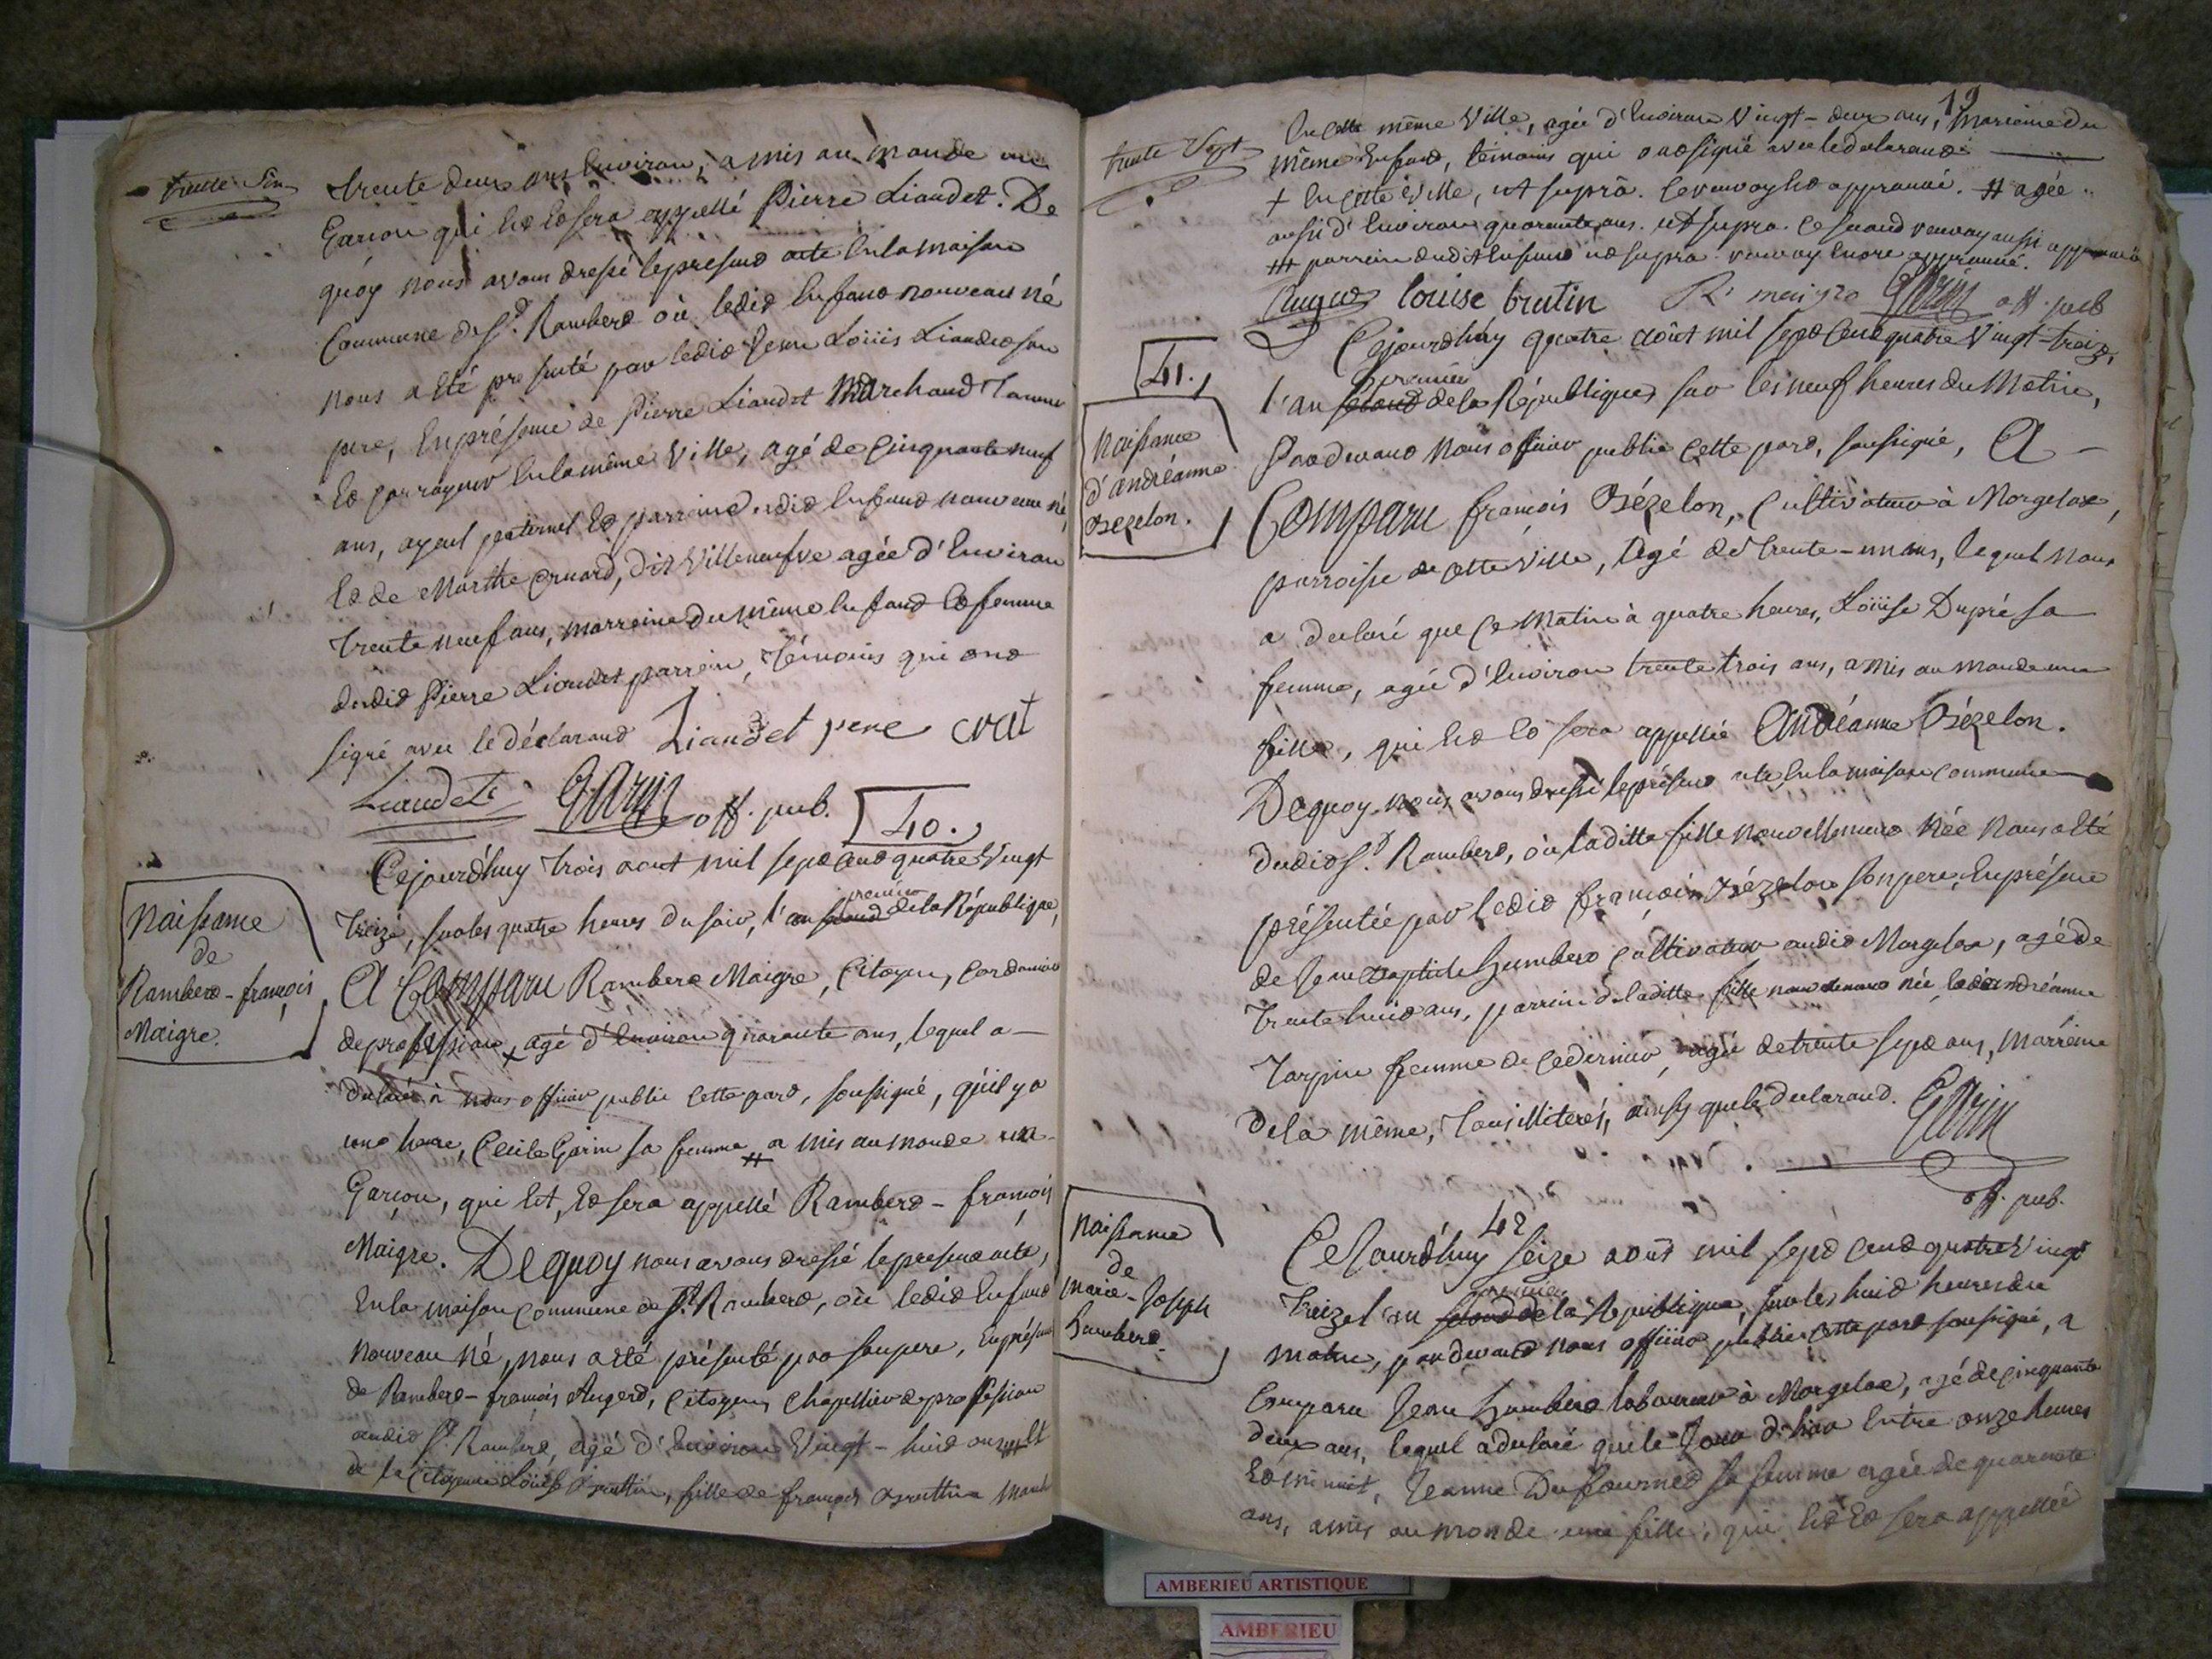 trente Six
trente deux ans Environ, a mis au monde un
Garçon qui est et sera appellé Pierre Liaudet. De
quoy nous avons dressé le present acte en la maison
Commune de St. Rambert où ledit Enfant nouveau né
nous a été presenté par ledit Jean Loüis Liaudet son
pere, En présence de Pierre Liaudet Marchand Tanneur
Et parroyeur En la même Ville, agé de Cinquante neuf
ans, ayeul paternel Et parrein dudit Enfant nouveau né,
Et de Marthe Cruard, dit Villeneufve agée d'Environ
trente neuf ans, marreine du même Enfant Et femme
dudit Pierre Liaudet parrein, témoins qui ont
signé avec le déclarant Liaudet pere crat
Liaudet Garin off. pub.
40.
Cejourd'huy trois aout mil sept cent quatre Vingt
premier
treize, sur les quatre heures du soir, l'an second de la République,
Naissance
de
Rambert-françois
Maigre.
A Comparu Rambert Maigre, Citoyen, Cordonier
de profession + agé d'Environ quarante ans, lequel a
declaré à nous officier public cette part, soussigné, qu'il y a
une heure, Cecile Garin sa femme # a mis au monde un
Garçon, qui Est, Et sera appellé Rambert-françois
Maigre. De quoy nous avons dressé le present acte,
En la maison Commune de St. Rambert, où ledit Enfant
nouveau né, nous a été présenté par son pere, En présence
de Rambert-françois Augerd, Citoyen Chapellier de profession
audit St. Rambert, agé d'Environ Vingt-huit ans Et
de la Citoyenne Loüise Bruttin, fille de françois Bruttin March
19
trente Sept
En cette même Ville, agée d'Environ Vingt-deux ans, Marreine du
même Enfant, témoins qui ont signé avec le declarant
+ En cette Ville, ut suprà. le renvoy Est approuvé. # agée
aussi d'Environ quarante ans. ut supra. Ce second renvoy aussi approuvé
parrein dudit Enfant ut supra. renvoy Encore approuvé.
Auguerd louise brutin R. maigre Garin off. pub
41.
Cejourd'huy quatre août mil sept Cent quatre Vingt-treize,
premier
l'an second de la République, sur les neuf heures du Matin,
Naissance
d'andréanne
Bézelon.
Par devant Nous officier public Cette part, soussigné, A
Comparu françois Bézelon, Cultivateur à Morgelas,
parroisse de cette Ville, agé de trente-un ans, lequel nous
a declaré que Ce Matin à quatre heures, Loüise Dupré sa
femme, agée d'Environ trente trois ans, a mis au monde une
fille, qui Est Et sera appellée Andréanne Bézelon.
De quoy nous avons dressé le présent acte En la maison commune
dudit St. Rambert, où laditte fille nouvellement Née Nous a Eté
présentée par ledit françois Bézelon son pere, En présence
de Jean Baptiste Humbert Cultivateur audit Morgelas, agé de
trente huit ans, parrein de laditte fille nouvellement née, Et d'andréanne
Tarpin femme de Cedernier, agée de trente sept ans, Marreine
de la même, tous illiterés, ainsy que le declarant. Garin
off. pub.
42
Naissance
de
Marie-Joseph
humbert.
Cejourd'huy seize août mil sept Cent quatre Vingt
premier
treize l'an second de la République, sur les huit heures du
matin, par devant nous officier public cette part soussigné, a
Comparu Jean humbert laboureur à Morgelas, agé de Cinquante
deux ans, lequel a declaré que le Jour d'hier Entre onze heures
Et minuit, Jeanne Dufournet sa femme agée de quarante
ans, a mis au monde une fille, qui Est Et sera appellée
AMBERIEU ARTISTIQUE
AMBERIEU